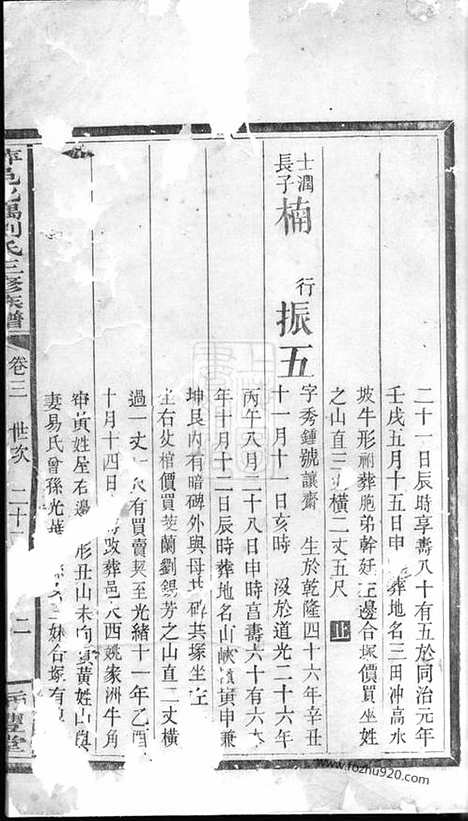 二十一日辰時享壽八十有五於同治元年
壬戌五月十五日申 葬地名三田冲高水
坡牛形祔葬胞弟幹廷左邊合塚價買坐姓
之山直三丈橫二丈五尺
士潤長子 楠 行振五
字秀鍾號讓齋 生於乾隆四十六年辛丑
十一月十一日亥時 歿於道光二十六年
丙午八月二十八日申時享壽六十有六本
年十月十二日辰時葬地名山 申兼
坤艮內有暗碑外與母 碑共塚坐左
左右 棺價買芰蘭劉錫芳之山直二丈橫
過一丈 有買賣契至光緒十一年乙酉
十月十四日 改葬邑 西姚家洲牛角
黃姓屋右邊 形丑山未向 黃姓山
妻易氏曾孫光 妹合塚有
劉氏三修族譜 卷三 世次 二十 二
豐堂
www.fozhu920.com